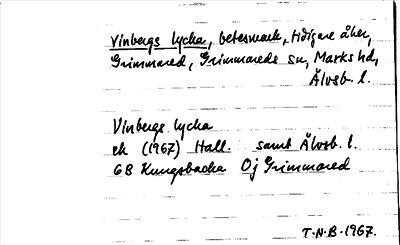 Vinbergs lycka, betesmark, tidigare åker,
Grimmared, Grimmareds sn, Marks hd,
Älvsb. l.
Vinbergs lycka
ek (1967) Hall. samt Älvsb. l.
6B Kungsbacka 0j Grimmared
T.N.B. 1967.